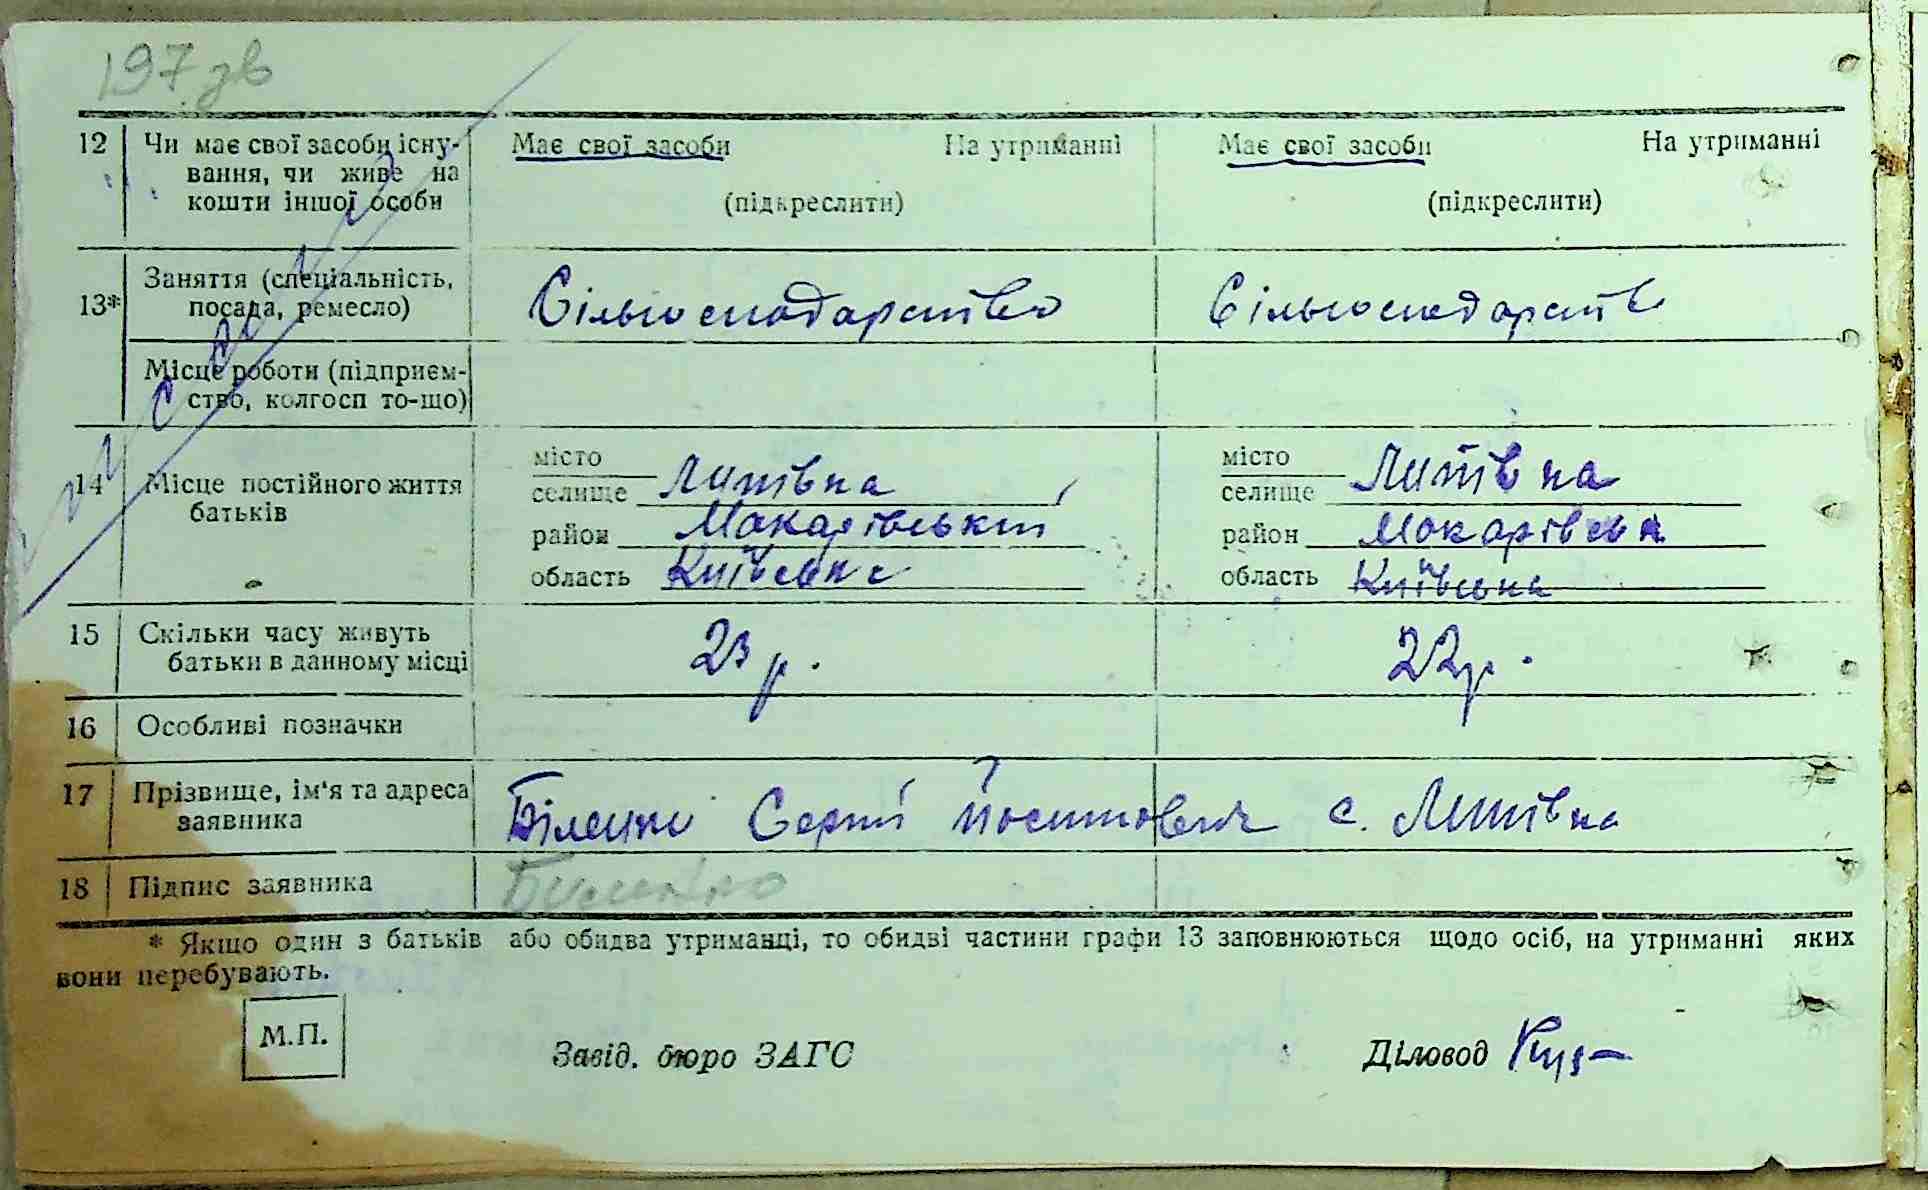 197 зв
12 Чи має свої засоби існу- Має свої засоби На утриманні Має свої засоби На утриманні
вання, чи живе на
кошти іншої особи (підкреслити) (підкреслити)
Заняття (спеціальність,
13* посада, ремесло) Сільгосподарство Сільгосподарств
Місце роботи (підприєм-
ство, колгосп то-що)
місто місто
14 Місце постійного життя селище Липівка селище Липівка
батьків район Макарівський район Макарівськ
область Київська область Київська
15 Скільки часу живуть 23 р. 22 р.
батьки в данному місці
16 Особливі позначки
17 Прізвище, ім'я та адреса Біленко Сергій Йосипович с. Липівка
заявника
18 Підпис заявника Биленко
* Якщо один з батьків або обидва утриманці, то обидві частини графи 13 заповнюються щодо осіб, на утриманні яких
вони перебувають.
М.П.
Завід. бюро ЗАГС Діловод